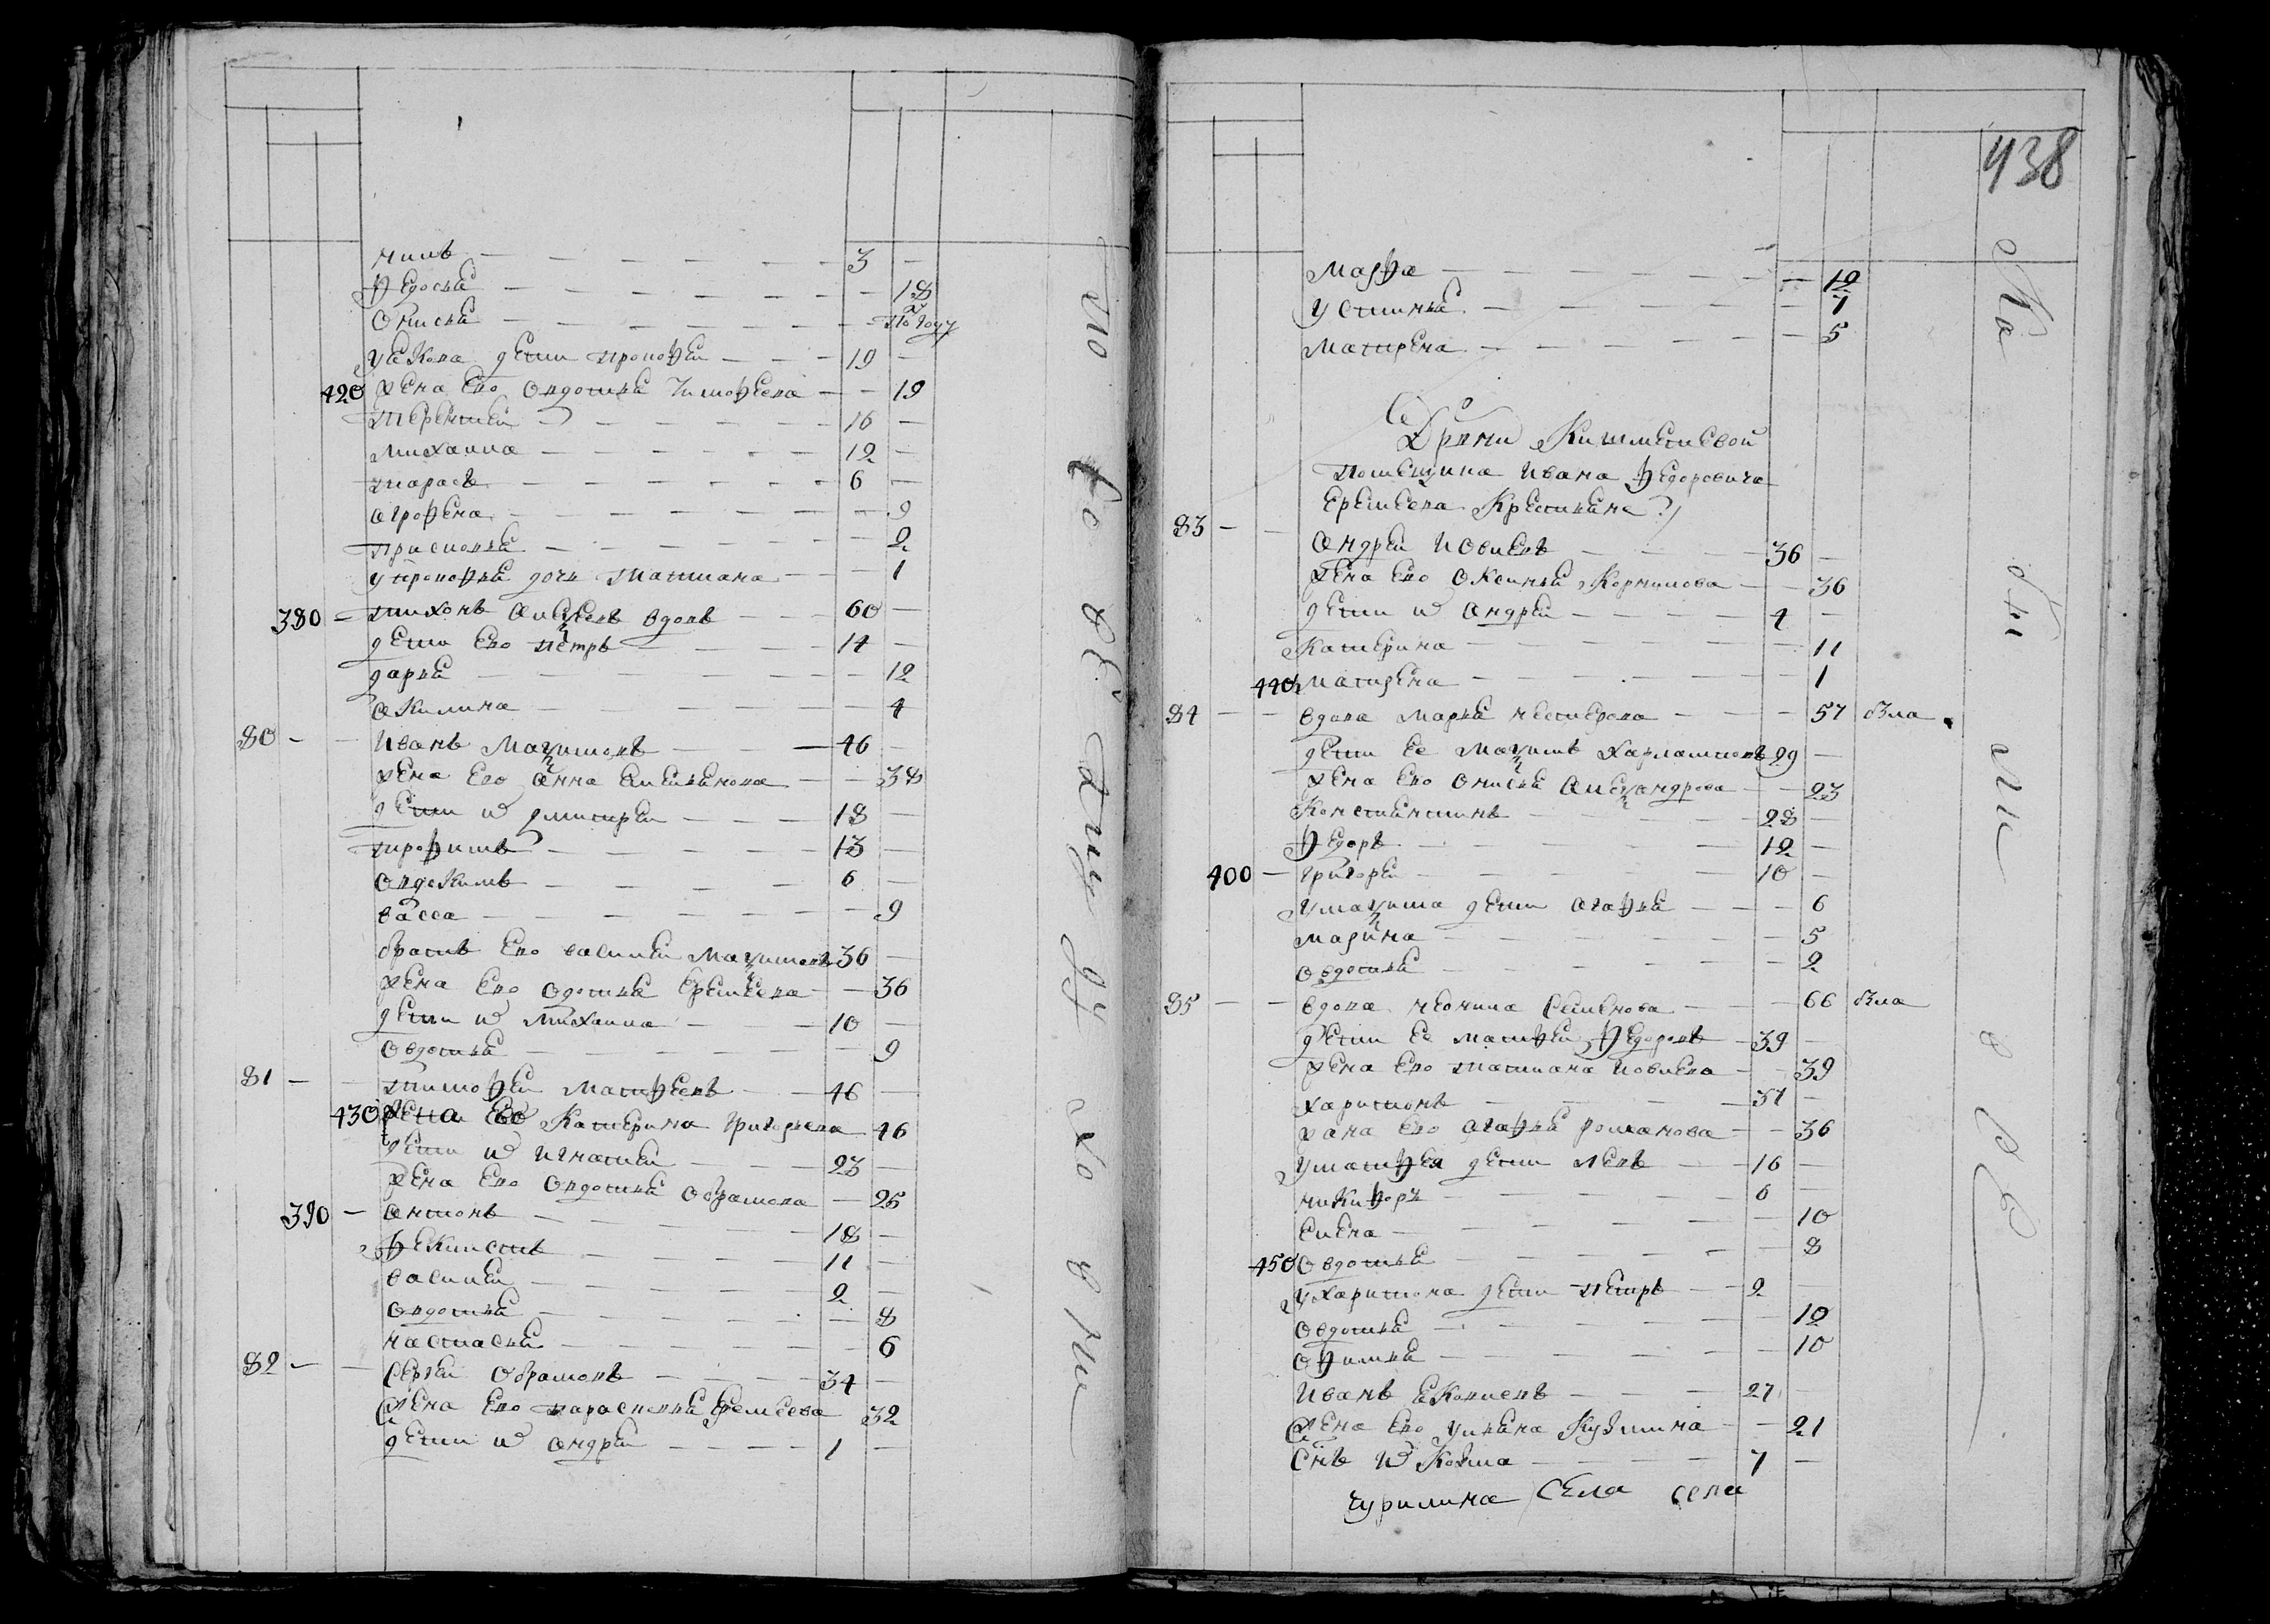 нилъ — 3 —
Федосья — — 18
Описья — — по году
уЯкова дети прокофеи — 19 —
420 жена Ево овдотья Тимофеева — — 19
терентеи — 16 —
михаила — 12 —
тарасъ — 6 —
агрофена — — 9
присковья — — 2
у прокофья дочь татиана — — 1
380 — тихонъ алексеевъ вдовъ — 60 —
дети Ево петръ — 14 —
дарья — — 12
акилина — — 4
80 — — Иванъ Максимовъ — 46 —
жена Ево анна Емельянова — — 38
дети ихъ дмитреи — 18 —
трофимъ — 13 —
овдокимъ — 6 —
васса — — 9
братъ Ево василеи Максимовъ 36 —
жена Ево одотья Еремеева — — 36
дети ихъ михаила — 10 —
овдотья — — 9
81 — — тимофеи Матфеевъ — 46 —
430 жена Ево Катерина григорьева 46
дети ихъ игнатеи — 23 —
жена Ево овдотья обрамова — 25
390 — антонъ — 18 —
Феклистъ — 11 —
василеи — 2 —
овдотья — — 8
настасья — — 6
82 — — Сергеи обрамовъ — 34 —
жена Ево парасковья Еремеева 32
дети ихъ андреи — 1 —
по сей в Е дому но в ни
438
Марфа — — 12
устинья — — 7
матрена — — 5
Помещика Ивана Федоровича
Еремеева Крестьяне
83 — — андреи Иовлевъ — 36 —
жена Ево оксинья Корнилова — — 36
дети ихъ андреи — 4 —
Катерина — — 11
440 матрена — — 1
84 — — вдова марья нестерова — — 57
дети Ее Максимъ харламповъ 29 —
жена Ево описья александрова — — 23
Констянтинъ — 28 —
Федоръ — 12 —
400 — григореи — 10 —
умаксима дети агафья — — 6
марина — — 5
овдотья — — 2
85 — — вдова неонила Семенова — — 66
дети Ее матфеи Федоровъ — 39 —
жена Ево татиана иовлева — — 39
харитонъ — 37 —
жана Ево агафья романова — — 36
уматфея дети левъ — 16 —
никифоръ — 6 —
Елена — — 10
450 овдотья — — 8
ухаритона дети петръ — 2 —
овдотья — — 12
офимья — — 10
Иванъ Яковлевъ — 27 —
жена Ево ульяна Кузмина — — 21
Снъ ихъ Козма — 7 —
чурилина села